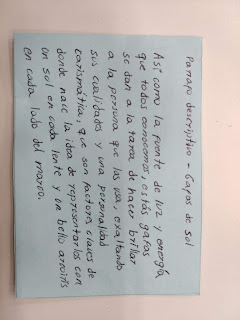 Parrafo descriptivo - Gafas de Sol
Así como la fuente de luz y energía
que todos conocemos, estás gafas
se dan a la tarea de hacer brillar
a la persona que las usa, exaltando
sus cualidades y una personalidad
carismática, que son factores claves de
donde nace la idea de representarlos con
un sol en cada lente y un bello arcoiris
en cada lado del marco.